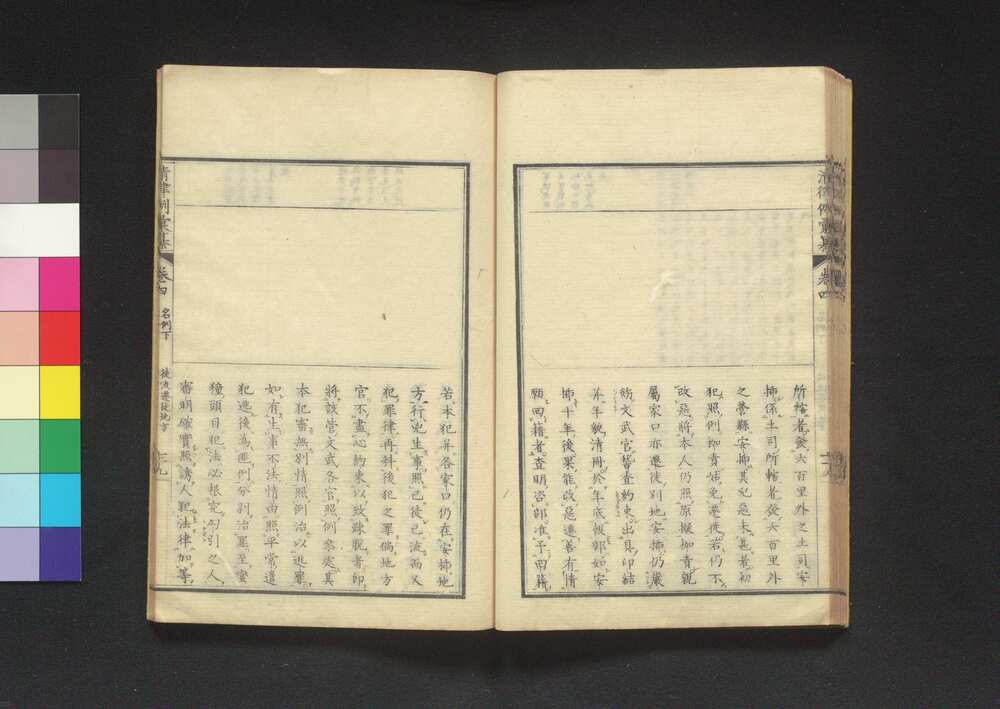 清律例彙纂
卷四
所轄者發六百里外之土司安
插係土司所轄者發六百里外
之營縣安插其兇惡未甚者初
犯照例枷責姑免遷徙若仍不
改惡將本人仍照原擬枷責親
屬家口亦遷徙別地安插仍嚴
飭文武官稽查約束出具印結
并年貌清冊於年底報部如安
插十年後果能改惡遷善有情
願回籍者查明咨部准予回籍
若本犯并各家口仍在安插地
方行兇生事照已徒已流而又
犯罪律再科後犯之罪倘地方
官不盡心約束以致疎脫者即
將該管文武各官照例叅處其
本犯審無別情照例治以逃罪
如有生事不法情由照平常遣
犯逃後為匪例分別治罪至蠻
獞頭目犯法必根究勾引之人
審明確實照誘人犯法律加等
清律例彙纂
卷四
名例下
徒流遷徙地方